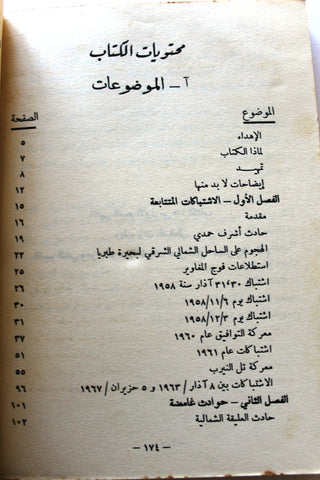 محتويات الكتاب
آ – الموضوعات
الموضوع الصفحة
الإهداء ٥
لماذا الكتاب ٧
تمهيد ٨
إيضاحات لا بد منها ١٢
الفصل الأول – الاشتباكات المتتابعة ١٥
مقدمة ١٦
حادث أشرف حمدي ١٩
الهجوم على الساحل الشمالي الشرقي لبحيرة طبريا ٢٢
استطلاعات فوج المغاوير ٢٥
اشتباك ٣٠،٣١ آذار سنة ١٩٥٨ ٢٦
اشتباك يوم ١٩٥٨/١١/٦ ٣٠
اشتباك يوم ١٩٥٨/١٢/٣ ٣١
معركة التوافيق عام ١٩٦٠ ٣٧
اشتباكات عام ١٩٦١ ٥١
معركة تل النيرب ٥٥
الاشتباكات بين ٨ آذار / ١٩٦٣ و ٥ حزيران / ١٩٦٧ ٩٦
الفصل الثاني – حوادث غامضة ١٠١
حادث العليقة الشمالية ١٠٢
– ١٧٤ –